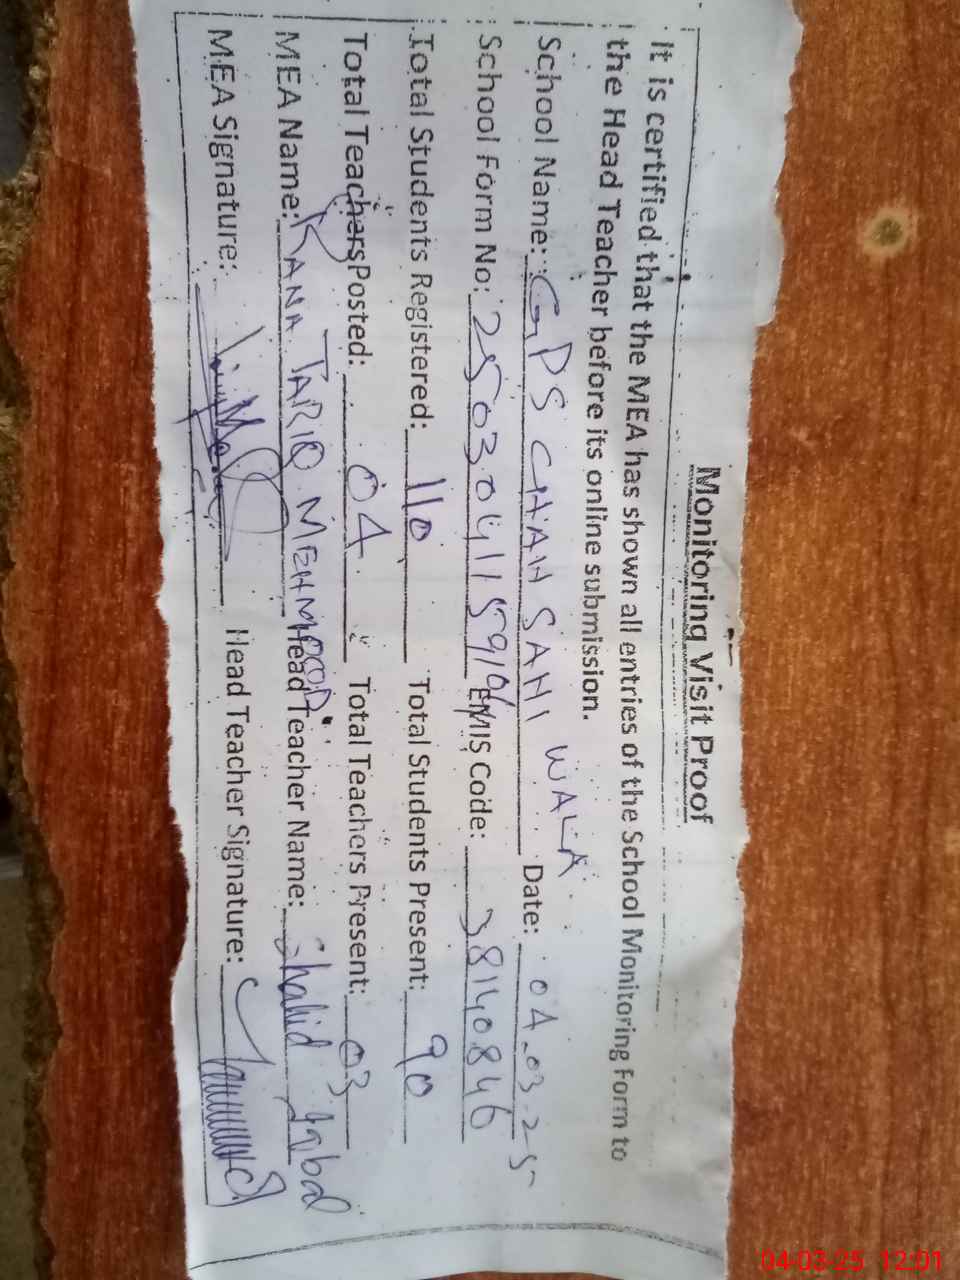 Monitoring Visit Proof
It is certified that the MEA has shown all entries of the School Monitoring Form to
the Head Teacher before its online submission.
School Name: GPS CHAH SANI WALA Date: 04-03-25
School Form No: 2503041159104 EMIS Code: 38140846
Total Students Registered: 110 Total Students Present: 90
Total Teachers Posted: 04 Total Teachers Present: 03
MEA Name: RANA TARIQ MEHMOOD Head Teacher Name: Shahid Iqbal
MEA Signature: Head Teacher Signature:
04-03-25 12:01